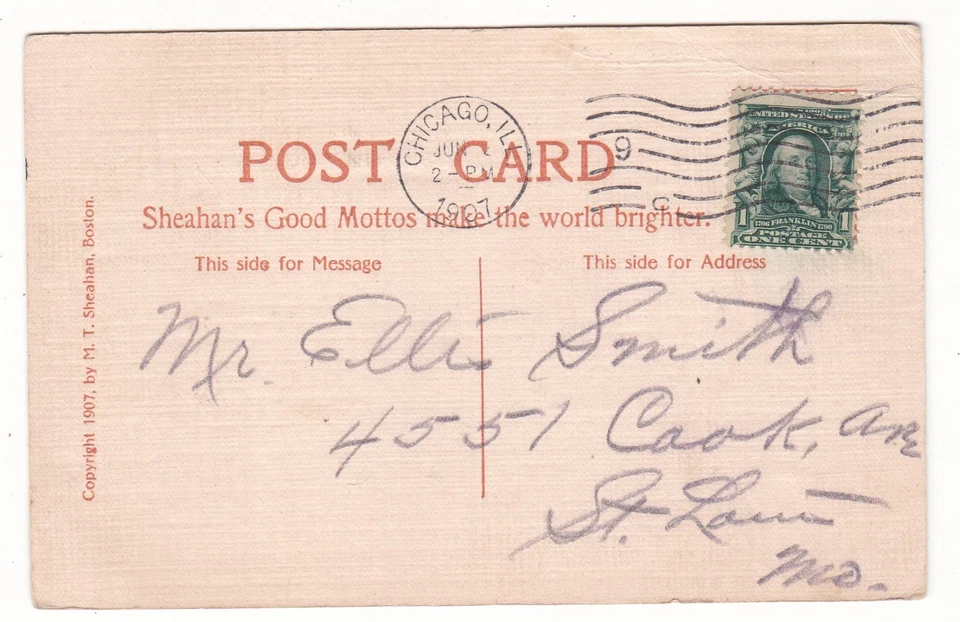 CHICAGO, ILL
JUN
2-PM
1907
9
C
UNITED STATES OF
AMERICA
1 1
1706 FRANKLIN 1790
POSTAGE
ONE CENT
POST CARD
Sheahan's Good Mottos make the world brighter.
This side for Message
This side for Address
Copyright 1907, by M. T. Sheahan, Boston.
Mr. Ellis Smith
4551 Cook, Ave
St. Louis
Mo.